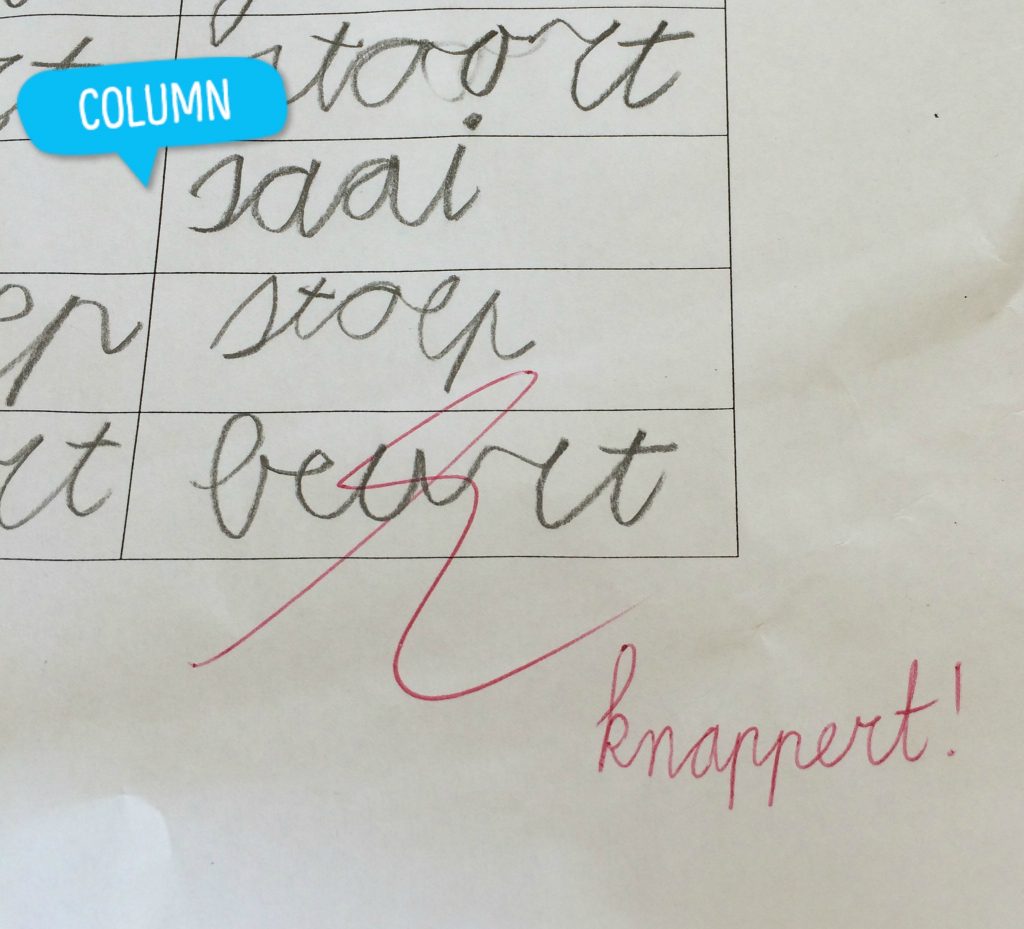 COLUMN
stoort
saai
ep stoep
rt beurt
knappert!